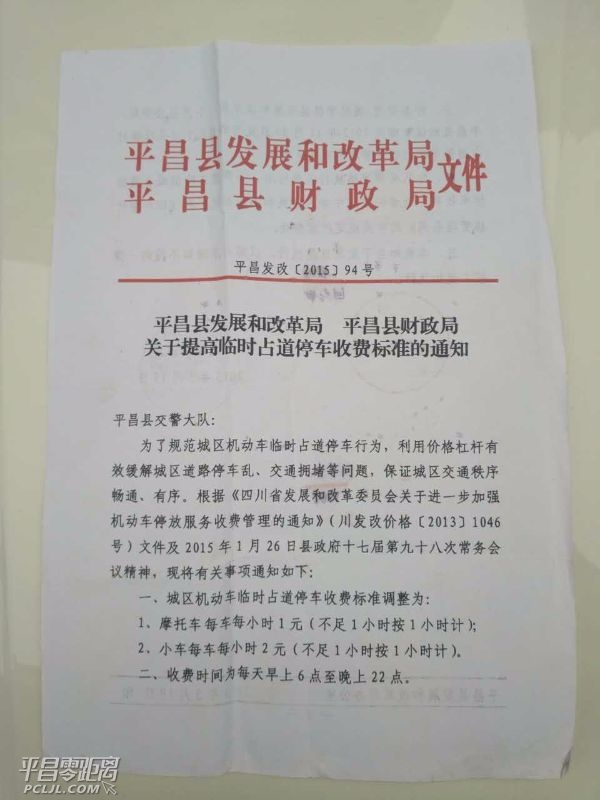 平昌县发展和改革局
平昌县财政局
文件
平昌发改〔2015〕94号
平昌县发展和改革局 平昌县财政局
关于提高临时占道停车收费标准的通知
平昌县交警大队:
为了规范城区机动车临时占道停车行为，利用价格杠杆有
效缓解城区道路停车乱、交通拥堵等问题，保证城区交通秩序
畅通、有序。根据《四川省发展和改革委员会关于进一步加强
机动车停放服务收费管理的通知》(川发改价格〔2013〕1046
号)文件及2015年1月26日县政府十七届第九十八次常务会
议精神，现将有关事项通知如下:
一、城区机动车临时占道停车收费标准调整为:
1、摩托车每车每小时1元(不足1小时按1小时计);
2、小车每车每小时2元(不足1小时按1小时计)。
二、收费时间为每天早上6点至晚上22点。
平昌零距离
PCLJL.COM